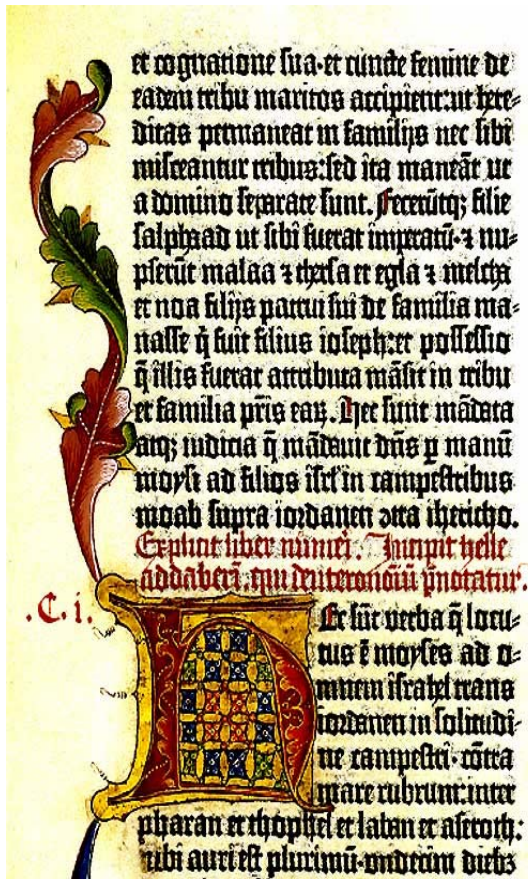 et cognatione sua·et cuncte femine de
eadem tribu maritos accipient:ut here=
ditas permaneat in familijs nec sibi
misceantur tribus:sed ita maneāt ut
a domino separate sunt. Fecerūtq; filie
salphaad ut sibi fuerat imperatū·⁊ nu=
pserūt malaa ⁊ thersa et egla ⁊ melcha
et noa filijs patrui sui de familia ma=
nasse q̄ fuit filius ioseph:et possessio
q̄ illis fuerat attributa māsit in tribu
et familia pr̄is eaꝝ. Hec sunt mādata
atq; iudicia q̄ mādauit dn̄s ꝑ manū
moysi ad filios isrl' in campestribus
moab supra iordanen ↄtra ihericho.
Explicit liber numeri. Incipit helle
addaberī. qui deuteronomiū p̄notatur·
.C. i. HEc sūt verba q̄ locu=
tus ē moyses ad o=
mnem israhel trans
iordanen in solitudi=
ne campestri·cōtra
mare rubrum:inter
pharan et thophel et laban et aseroth:
ubi auri est plurimū·undecim diebꝫ